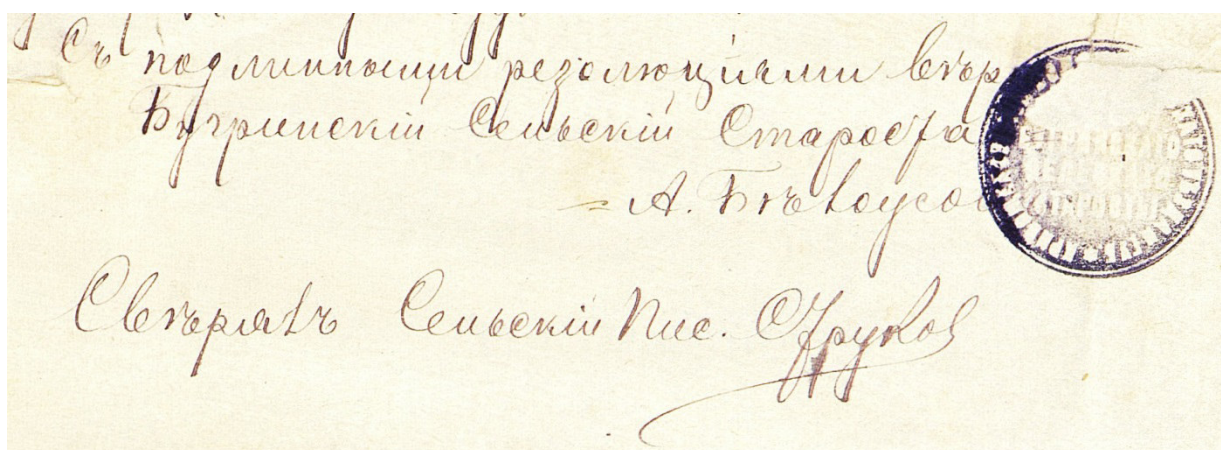 Съ подлинными резолюціями вѣр
Бугринскій Сельскій Староста
А. Бѣлоусов
Свѣрялъ Сельскій Пис. Струков